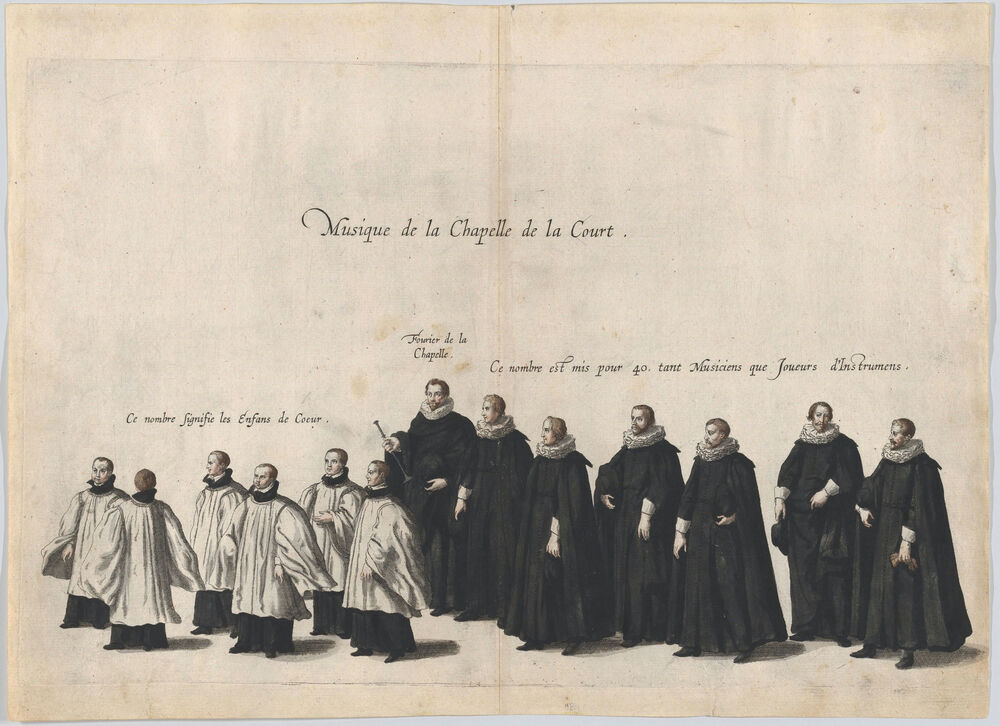 Musique de la Chapelle de la Court .
Fourier de la
Chapelle .
Ce nombre est mis pour 40. tant Musiciens que Joueurs d'Instrumens .
Ce nombre signifie les Enfans de Coeur .